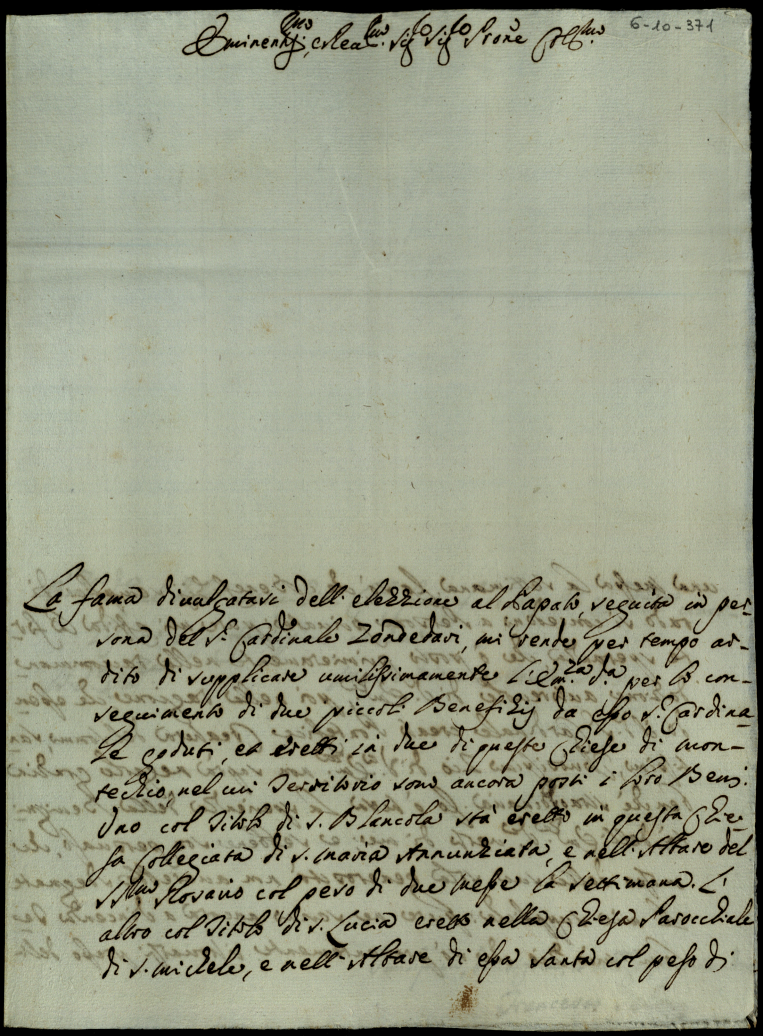 6-10-371
Eminentmo, e Revmo. Sigre Sigre Prone Colmo.
La fama divulgatasi dell'elezzione al Papato, seguita in per-
sona del Sr. Cardinale Zondedari, mi rende per tempo ar-
dito di supplicare umilissimamente l'Emza. da. per lo con-
seguimento di due piccoli Benefizij da esso Sr. Cardina-
le goduti, et eretti in due di queste Chiese di Mon-
tecchio, nel cui Territorio sono ancora posti i loro Beni.
Uno col Titolo di S. Blancola stà eretto in questa Chie-
sa Collegiata di S. Maria Annunziata, e nell'Altare del
SSmo Rosario col peso di due Messe la settimana. L'
altro col Titolo di S. Lucia eretto nella Chiesa Parocchiale
di S. Michele, e nell'Altare di essa Santa col peso di